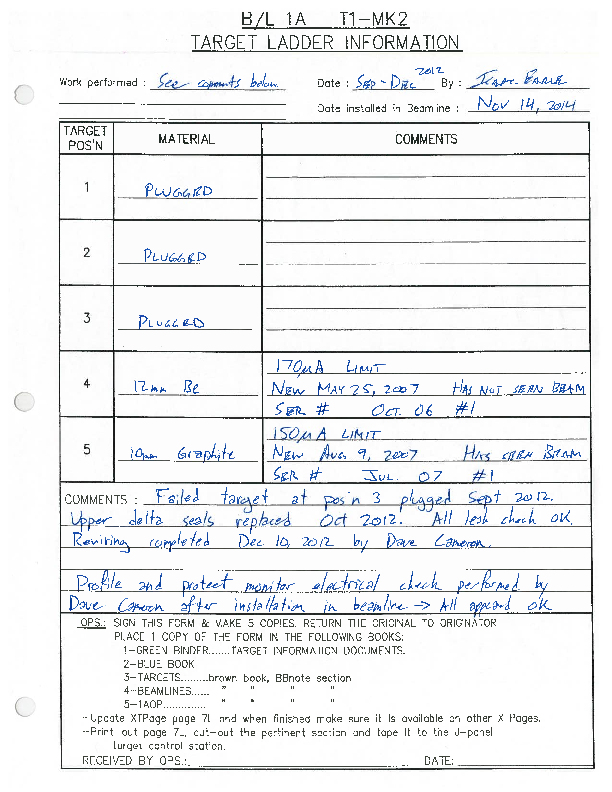 B/L 1A T1-MK2
TARGET LADDER INFORMATION
Work performed : See comments below Date : SEP - DEC 2012 By :
Date installed in Beamline : NOV 14, 2014
TARGET POS'N MATERIAL COMMENTS
1 PLUGGED
2 PLUGGED
3 PLUGGED
170µA LIMIT
4 12mm Be NEW MAY 25, 2007 HAS NOT SEEN BEAM
SER # OCT. 06 #1
150µA LIMIT
5 10mm Graphite NEW AUG 9, 2007 HAS SEEN BEAM
SER # JUL. 07 #1
COMMENTS : Failed target at pos'n 3 plugged Sept 2012.
Upper delta seals replaced Oct 2012. All leak check OK.
Rewiring completed Dec 10, 2012 by Dave Cameron.
Profile and protect monitor electrical check performed by
Dave Cameron after installation in beamline → All appeared OK
OPS.: SIGN THIS FORM & MAKE 5 COPIES. RETURN THE ORIGINAL TO ORIGINATOR
PLACE 1 COPY OF THE FORM IN THE FOLLOWING BOOKS:
1-GREEN BINDER.......TARGET INFORMATION DOCUMENTS.
2-BLUE BOOK
3-TARGETS.........brown book, BBnote section
4-BEAMLINES...... " " " "
5-1AOP.............. " " " "
-Update XTPage page 7L and when finished make sure it is available on other X Pages.
-Print out page 7L, cut-out the pertinent section and tape it to the J-panel
target control station.
RECEIVED BY OPS.: DATE: